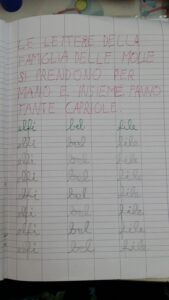 LE LETTERE DELLA
FAMIGLIA DELLE MOLLE
SI PRENDONO PER
MANO E INSIEME FANNO
TANTE CAPRIOLE.
elfi bel file
elfi bel file
elfi bel file
elfi bel file
elfi bel file
elfi bel file
elfi bel file
elfi bel file